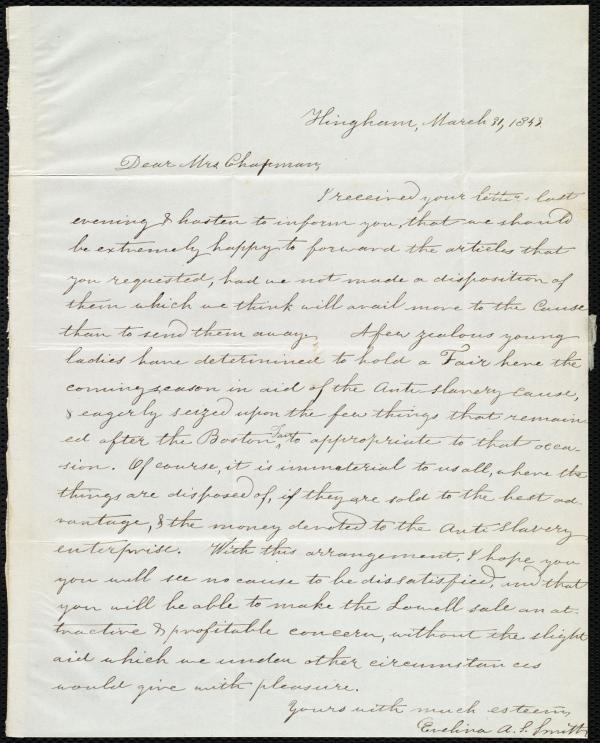 Hingham, March 31, 1843
Dear Mrs Chapman,
I received your letter last
evening & hasten to inform you, that we should
be extremely happy to forward the articles that
you requested, had we not made a disposition of
them which we think will avail more to the Cause
than to send them away. A few zealous young
ladies have determined to hold a Fair here the
coming season in aid of the Anti slavery cause,
& eagerly seized upon the few things that remain
ed after the Boston Fair to appropriate to that occa-
sion. Of course, it is immaterial to us all, where the
things are disposed of, if they are sold to the best ad-
vantage, & the money devoted to the Anti Slavery
enterprise. With this arrangement, I hope you
you will see no cause to be dissatisfied, and that
you will be able to make the Lowell sale an at-
tractive & profitable concern, without the slight
aid which we under other circumstances
would give with pleasure.
Yours with much esteem,
Evelina A. S. Smith